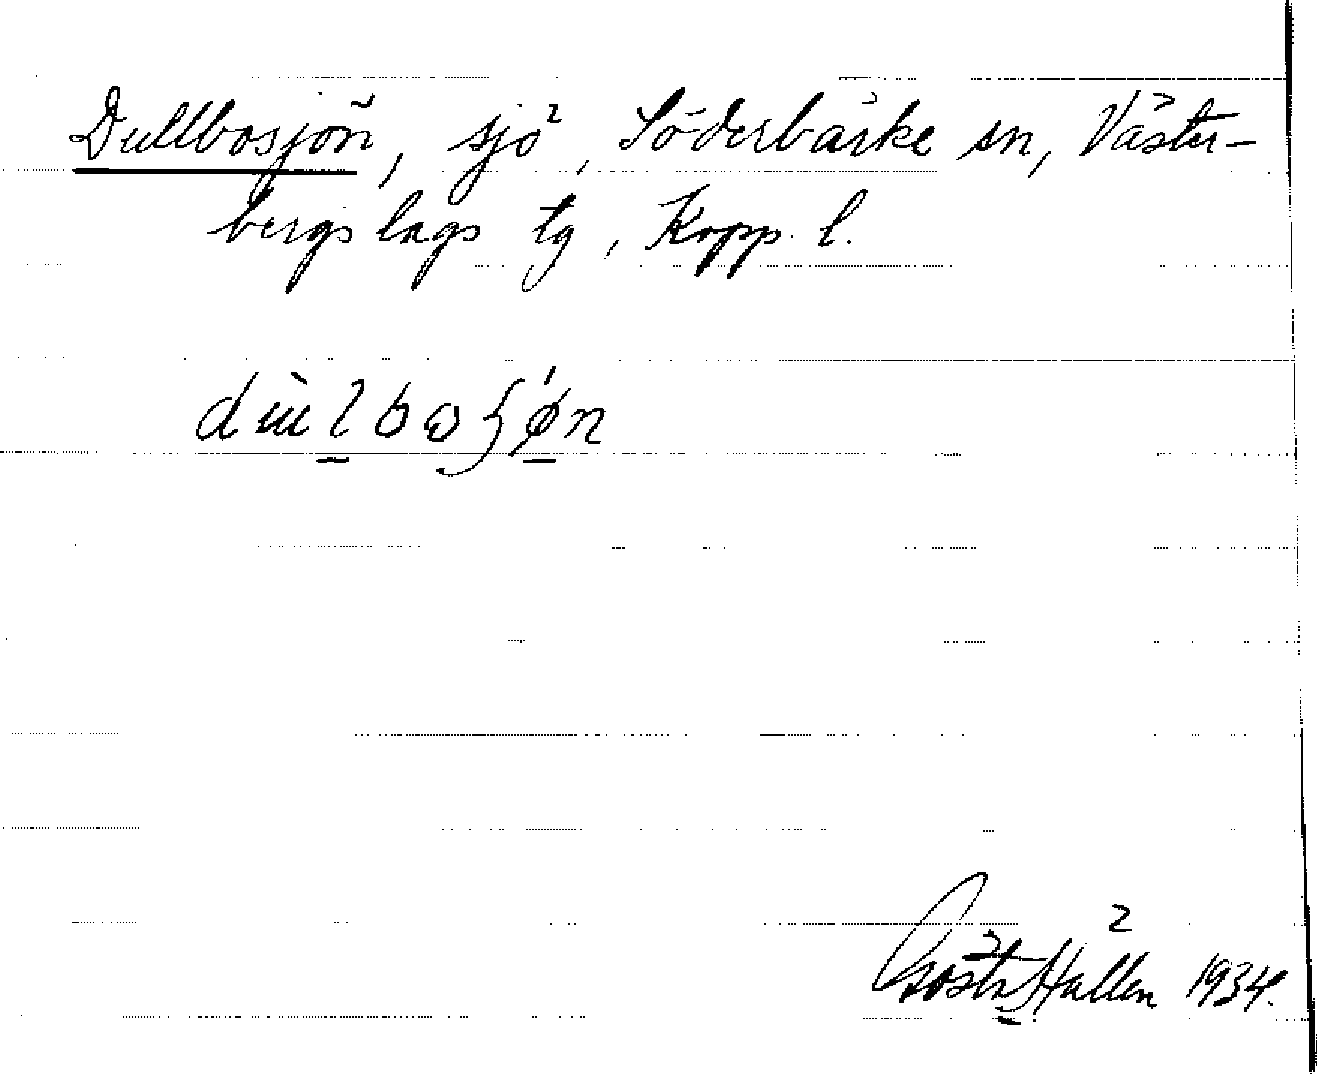 Dullbosjön, sjö, Söderbärke sn, Väster-
bergslags tg, Kopp. l.
Gösta Hallen 1934.